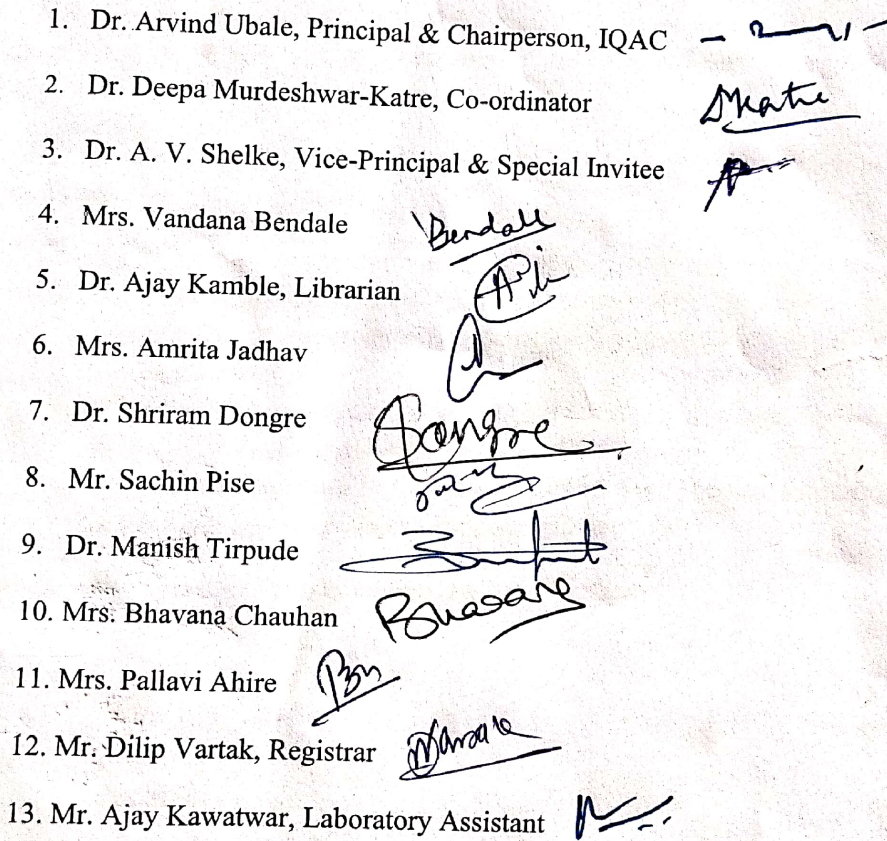 1. Dr. Arvind Ubale, Principal & Chairperson, IQAC
2. Dr. Deepa Murdeshwar-Katre, Co-ordinator DKatre
3. Dr. A. V. Shelke, Vice-Principal & Special Invitee
4. Mrs. Vandana Bendale Bendale
5. Dr. Ajay Kamble, Librarian
6. Mrs. Amrita Jadhav
7. Dr. Shriram Dongre Dongre
8. Mr. Sachin Pise
9. Dr. Manish Tirpude
10. Mrs. Bhavana Chauhan
11. Mrs. Pallavi Ahire
12. Mr. Dilip Vartak, Registrar
13. Mr. Ajay Kawatwar, Laboratory Assistant